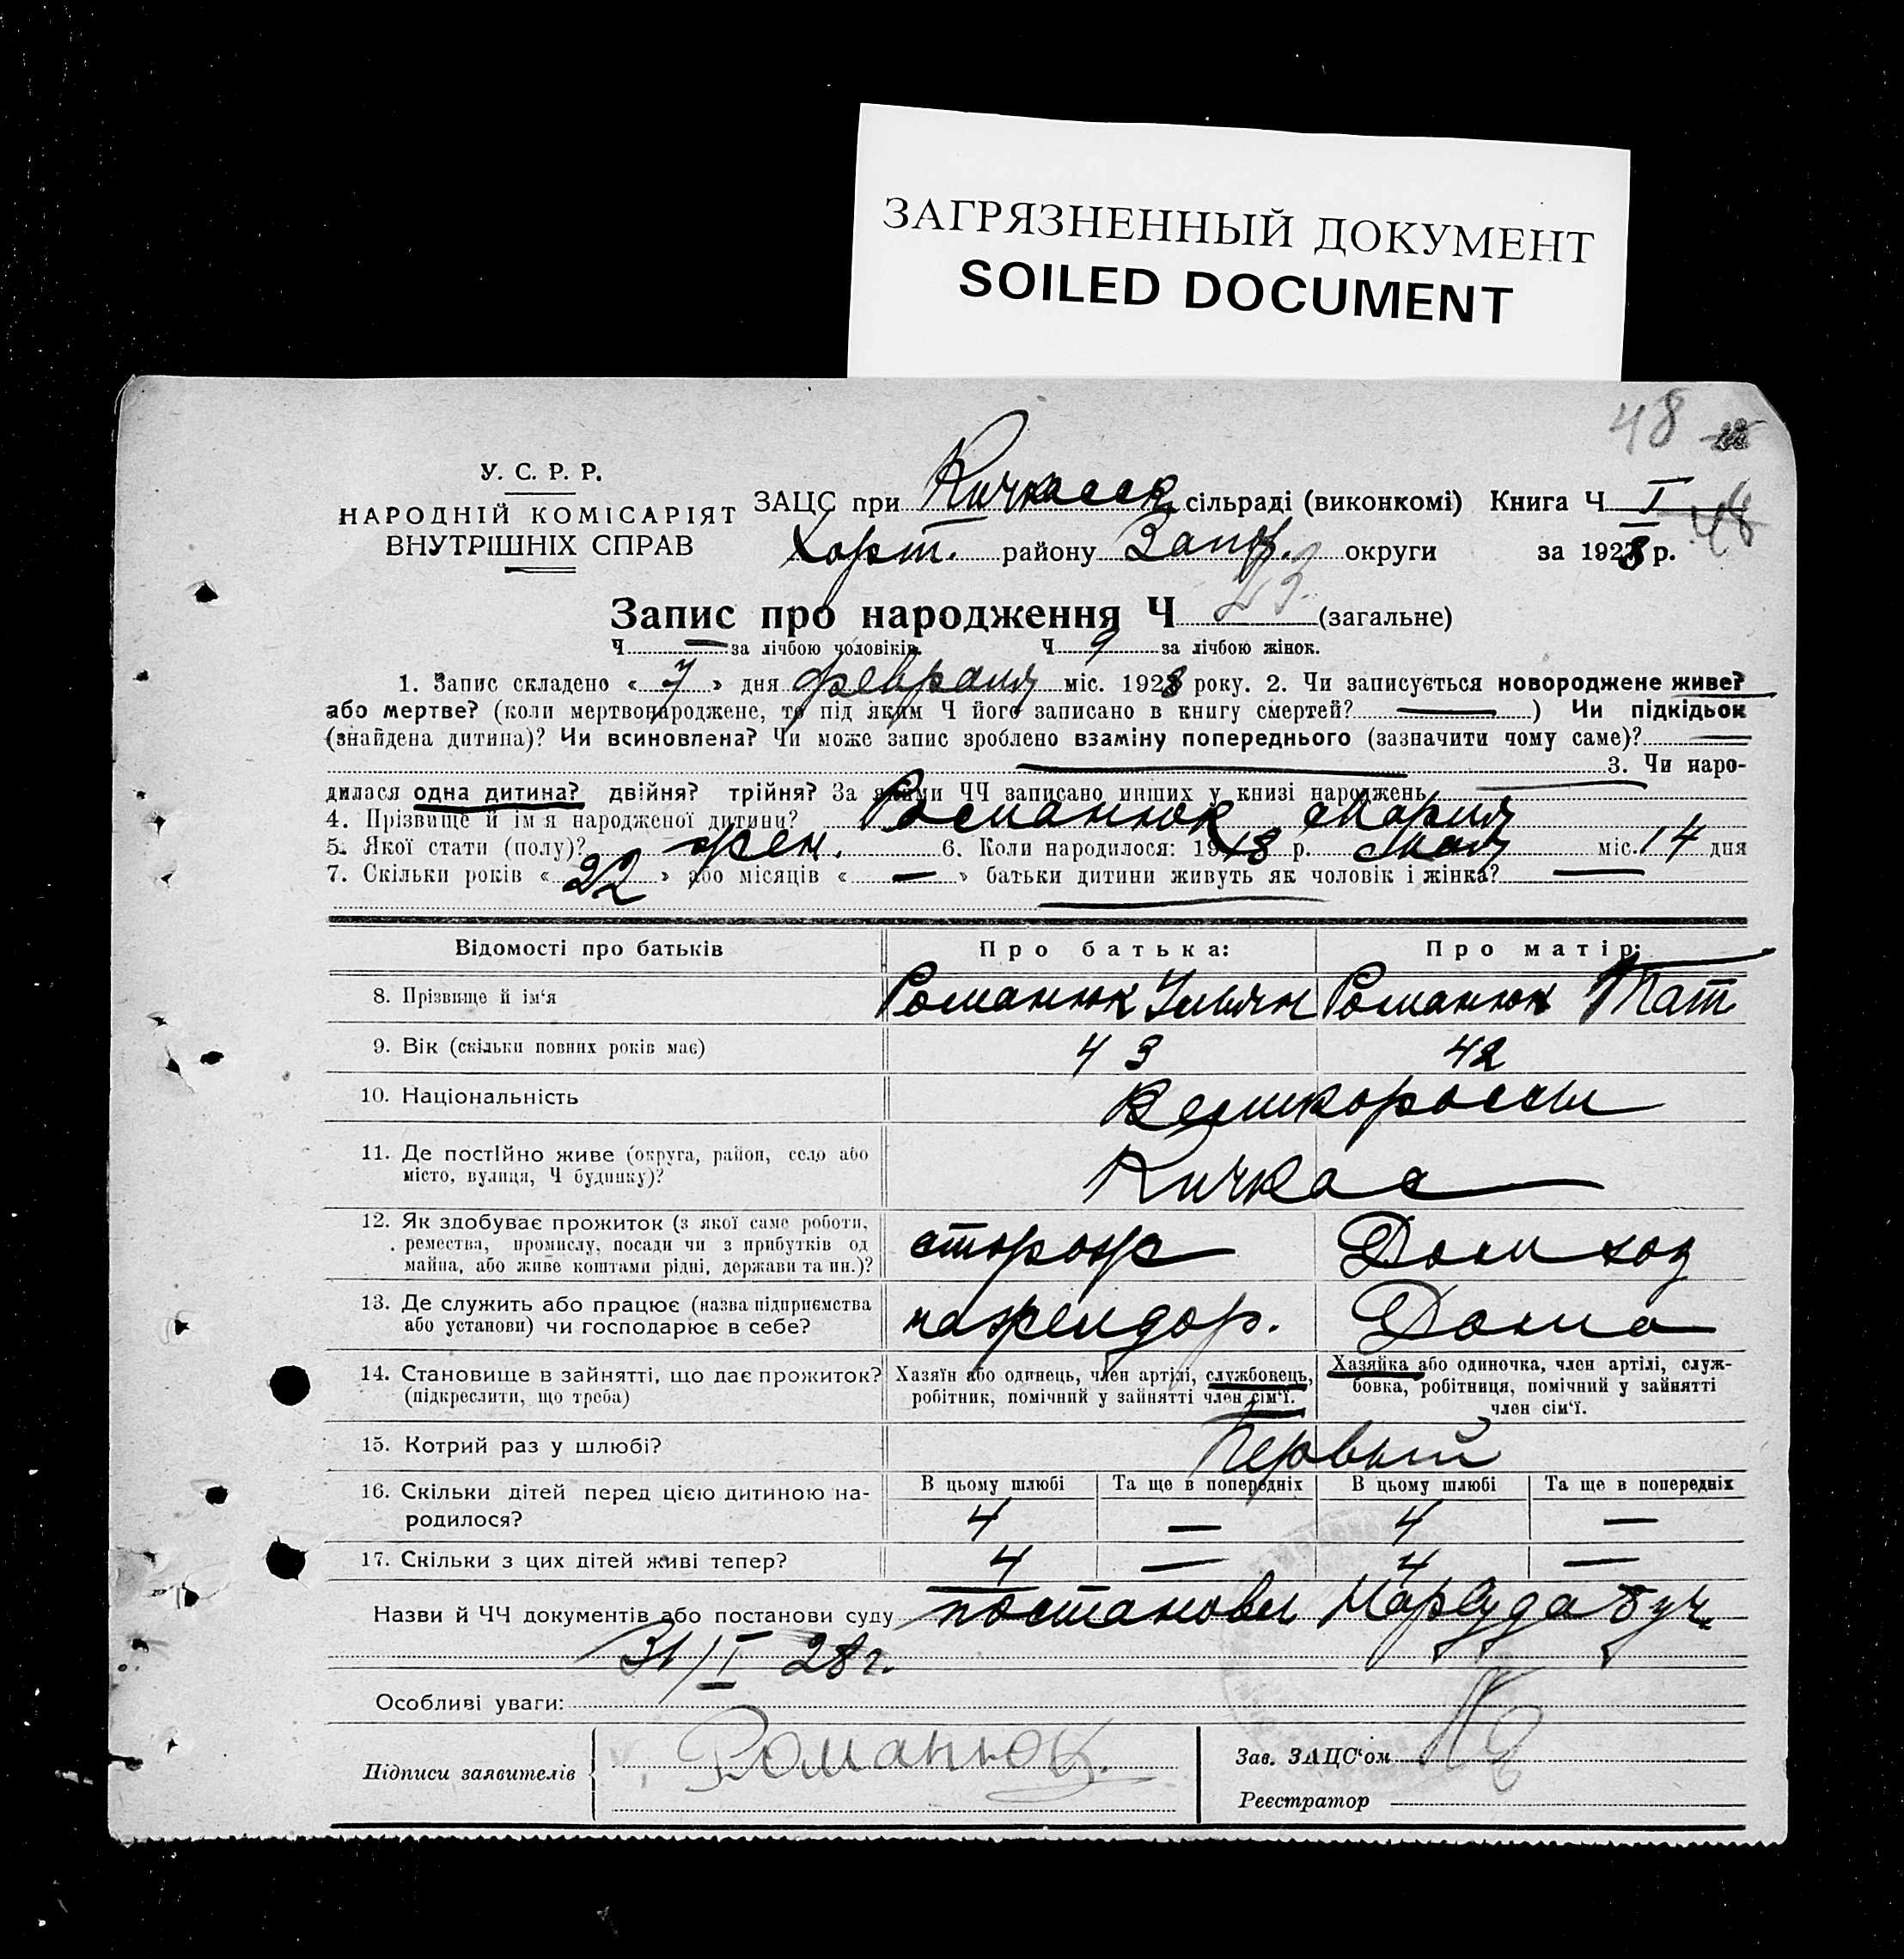 ЗАГРЯЗНЕННЫЙ ДОКУМЕНТ
SOILED DOCUMENT
48
У. С. Р. Р.
НАРОДНІЙ КОМІСАРІЯТ
ВНУТРІШНІХ СПРАВ
ЗАЦС при Кичкасск сільраді (виконкомі) Книга Ч I
48
Хорт. району Запор. округи за 1928 р.
Запис про народження Ч 23 (загальне)
Ч — за лічбою чоловіків. Ч 9 за лічбою жінок.
1. Запис складено « 7 » дня февраля міс. 1928 року. 2. Чи записується новороджене живе?
або мертве? (коли мертвонароджене, то під яким Ч його записано в книгу смертей? — ) Чи підкідьок
(знайдена дитина)? Чи всиновлена? Чи може запис зроблено взаміну попереднього (зазначити чому саме)? —
— 3. Чи наро-
дилася одна дитина? двійня? трійня? За якими ЧЧ записано инших у книзі народжень —
4. Прізвище й ім'я народженої дитини? Романюк Мария
5. Якої стати (полу)? жен. 6. Коли народилося: 1918 р. Мая міс. 14 дня
7. Скільки років « 22 » або місяців « — » батьки дитини живуть як чоловік і жінка? —
Відомості про батьків Про батька: Про матір:
8. Прізвище й ім'я Романюк Ульян Романюк Тат
9. Вік (скільки повних років має) 43 42
10. Національність Великороссы
11. Де постійно живе (округа, район, село або
місто, вулиця, Ч будинку)? Кичкас
12. Як здобуває прожиток (з якої саме роботи,
ремества, промислу, посади чи з прибутків од
майна, або живе коштами рідні, держави та ин.)? сторож Домхоз
13. Де служить або працює (назва підприємства
або установи) чи господарює в себе? на желдор. Дома
14. Становище в зайнятті, що дає прожиток?
(підкреслити, що треба)
Хазяїн або одинець, член артілі, службовець,
робітник, помічний у зайнятті член сім'ї.
Хазяйка або одиночка, член артілі, служ-
бовка, робітниця, помічний у зайнятті
член сім'ї.
15. Котрий раз у шлюбі? Первый
16. Скільки дітей перед цією дитиною на-
родилося?
В цьому шлюбі Та ще в попередніх В цьому шлюбі Та ще в попередніх
4 — 4 —
17. Скільки з цих дітей живі тепер? 4 — 4 —
Назви й ЧЧ документів або постанови суду постановы Нарсуда 8 уч.
31/I 28 г.
Особливі уваги:
Підписи заявителів Романюк.
Зав. ЗАЦС'ом
Реєстратор